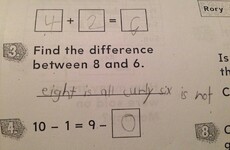 4 + 2 = 6
Rory
3. Find the difference
between 8 and 6.
eight is all curly six is not
Is
th
C
4. 10 − 1 = 9 − 0
8.